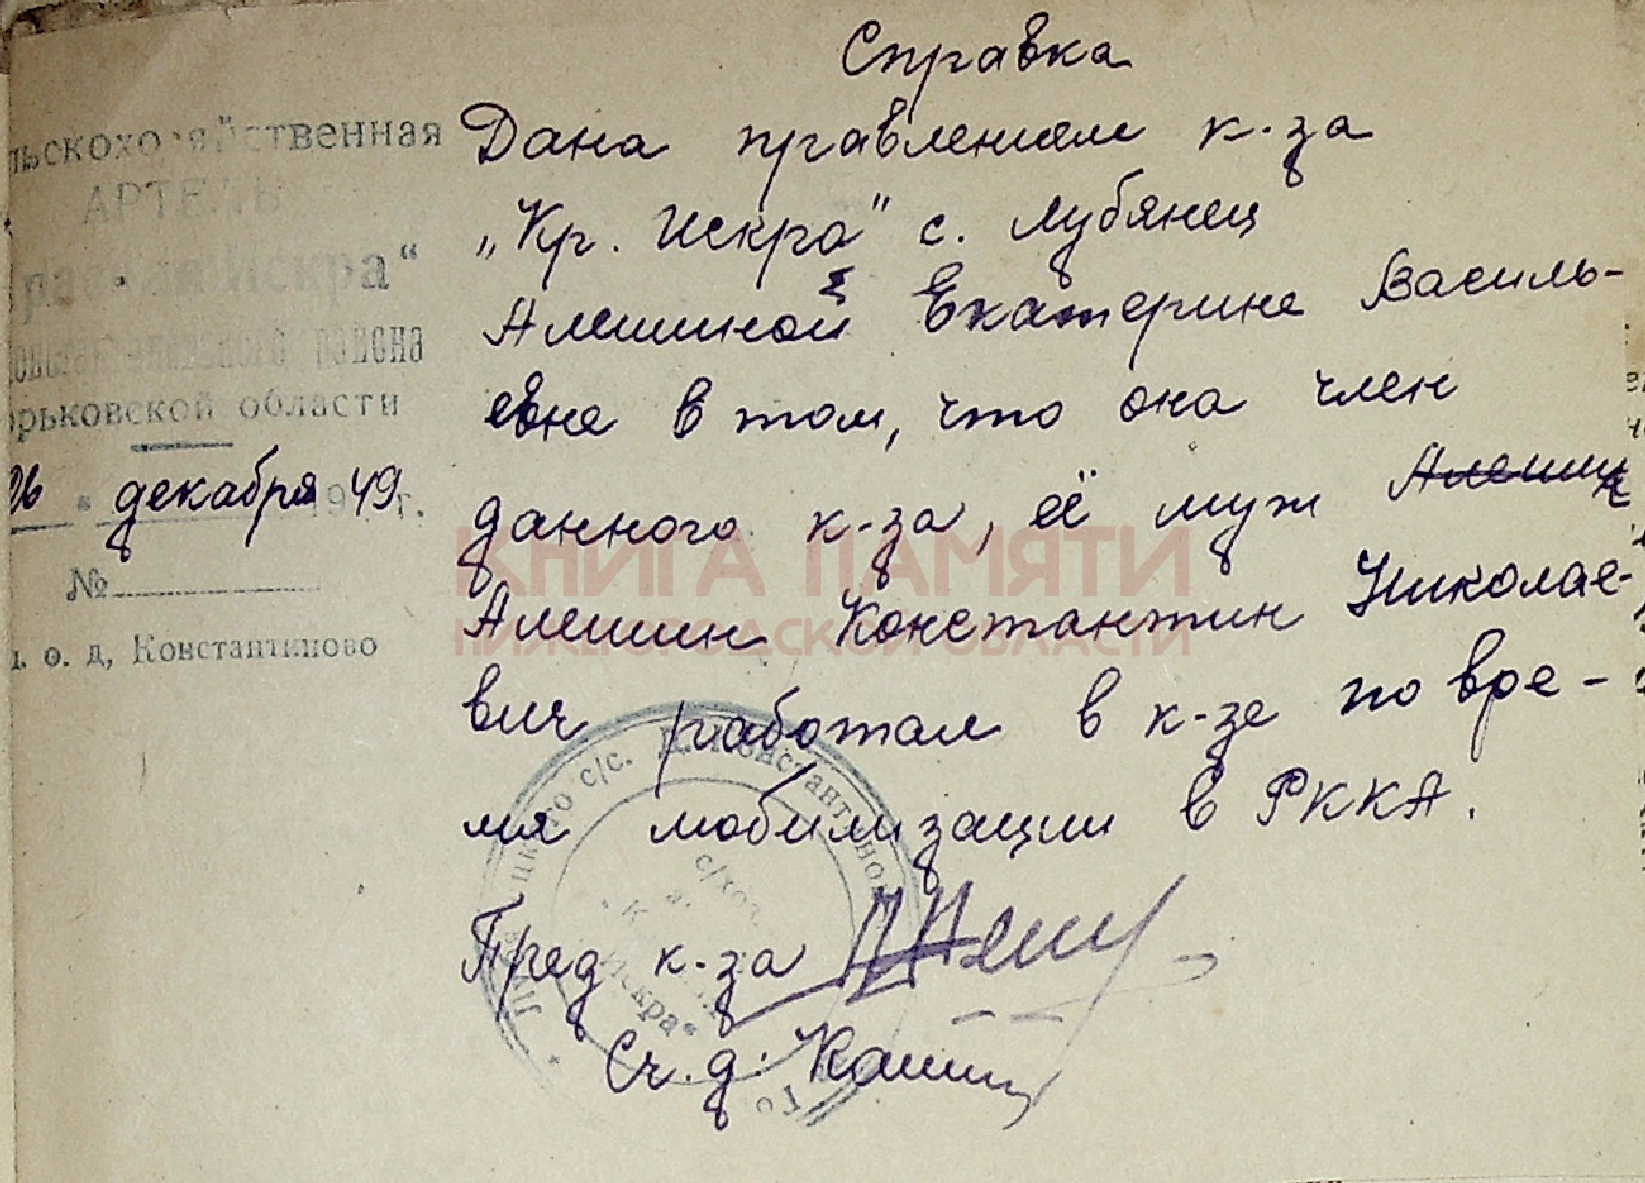 Справка
льскохозяйственная
АРТЕЛЬ
Искра"
района
орьковской области
26 декабря 1949 г.
№
п. о. д, Константиново
Дана правлением к-за
„Кр. Искра" с. Лубянец
Алешиной Екатерине Василь-
евне в том, что она член
данного к-за, её муж Алешин
Алешин Константин Николае-
вич работал в к-зе по вре-
мя мобилизации в РККА.
Пред к-за
Сч. д:
КНИГА ПАМЯТИ
НИЖЕГОРОДСКОЙ ОБЛАСТИ
с/с. Константинов
с/хоз.
Искра"